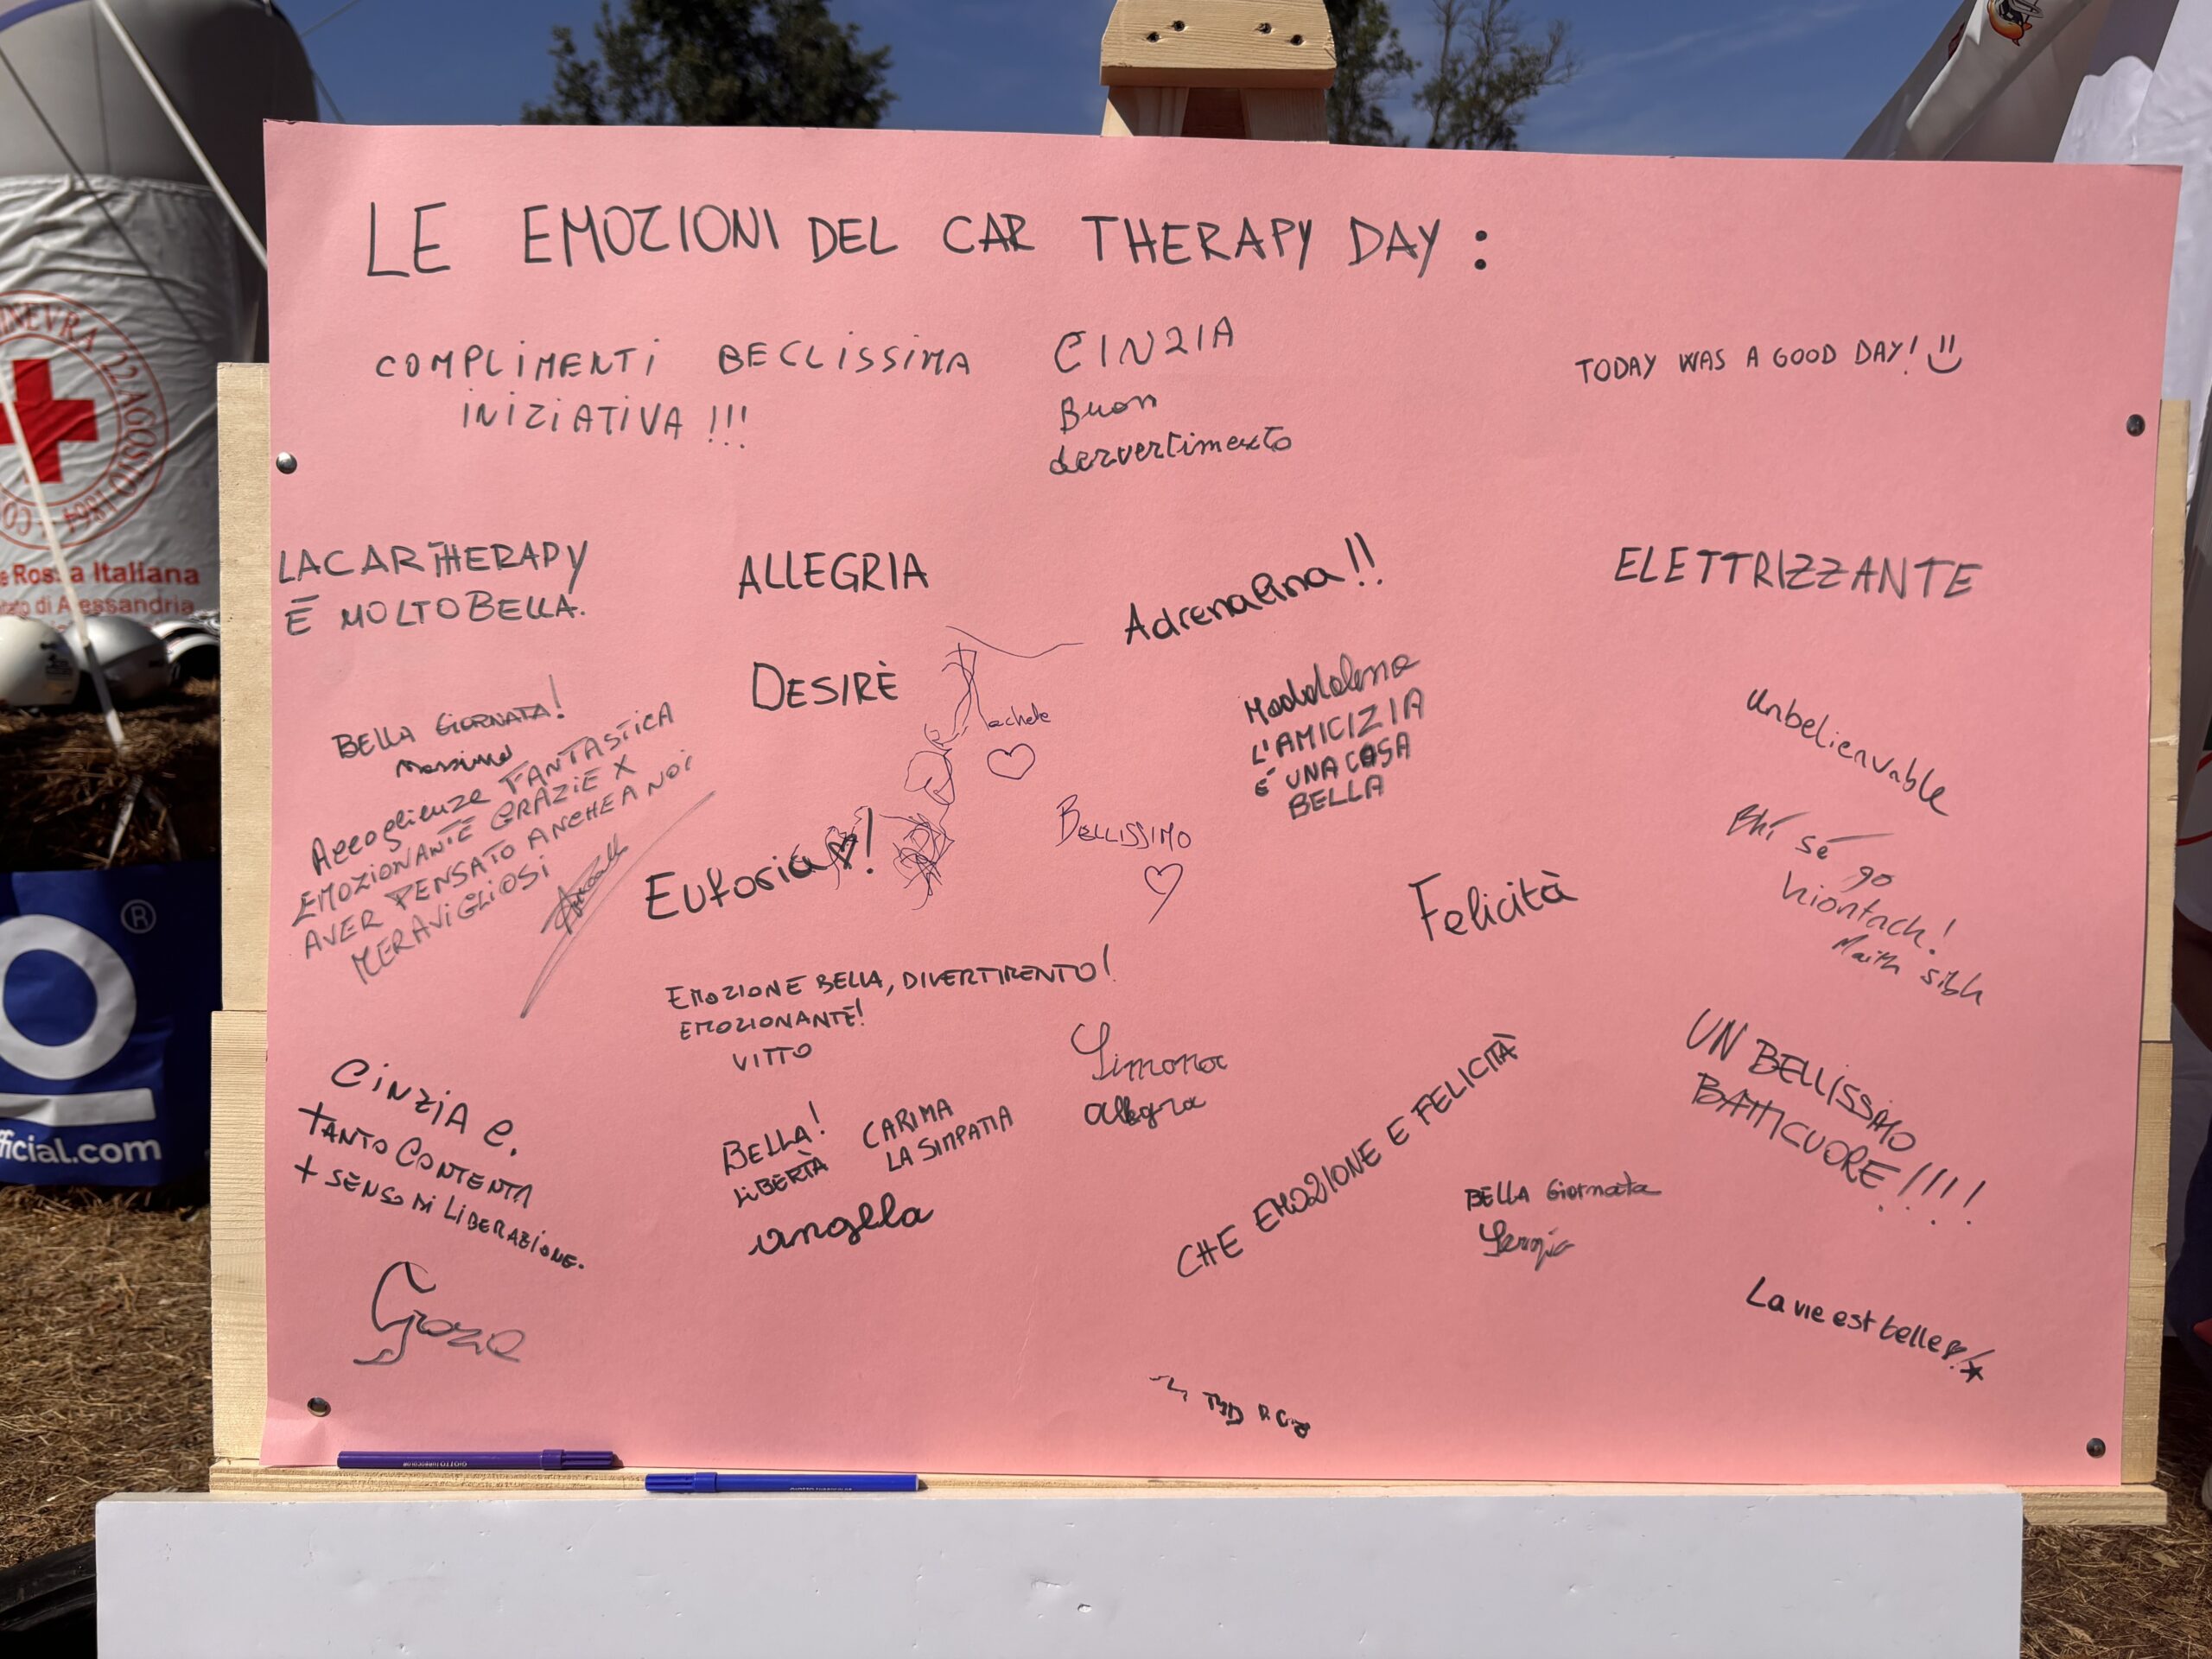 LE EMOZIONI DEL CAR THERAPY DAY :
COMPLIMENTI BELLISSIMA
INIZIATIVA !!!
CINZIA
Buon
TODAY WAS A GOOD DAY!
LA CAR THERAPY
È MOLTO BELLA.
ALLEGRIA
Adrenalina!!
ELETTRIZZANTE
DESIRÈ
Rachele
Maddalena
L'AMICIZIA
É UNA COSA
BELLA
Unbelienvable
BELLA GIORNATA!
Massimo
Accoglienza FANTASTICA
EMOZIONANTE GRAZIE X
AVER PENSATO ANCHE A NOI
MERAVIGLIOSI
Euforia !
BELLISSIMO
Felicità
Bhí sé go
hiontach!
Maith sibh
EMOZIONE BELLA, DIVERTIMENTO!
EMOZIONANTE!
VITTO
Simona
allegra
CINZIA C.
+ TANTO CONTENTA
+ SENSO DI LIBERAZIONE.
BELLA!
LIBERTÀ
CARIMA
LA SIMPATIA
angella
CHE EMOZIONE E FELICITÀ
UN BELLISSIMO
BATTICUORE!!!!
BELLA Giornata
Sergio
La vie est belle !
GINEVRA 22 AGOSTO 1864
Rossa Italiana
di Alessandria
®
ficial.com